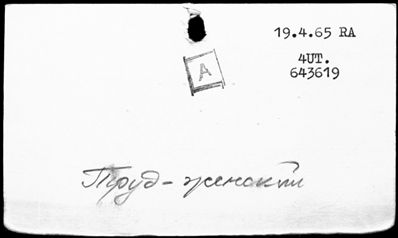 19.4.65 RA
4UT.
643619
A
Труд - женский